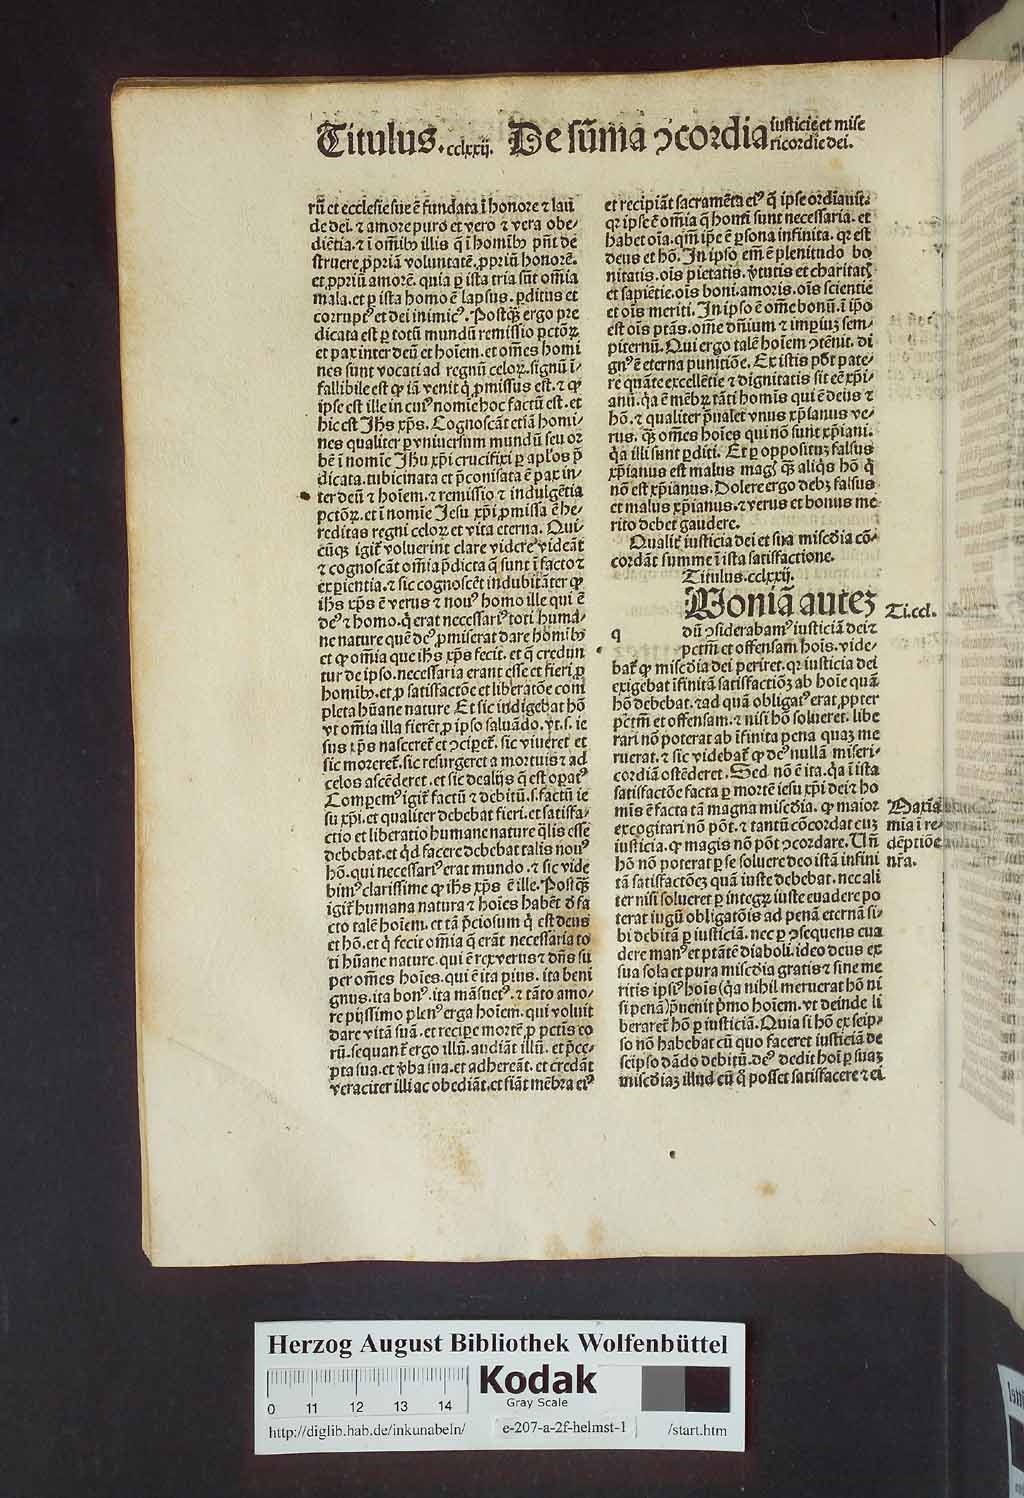 Titulus .cclxxij. De sūma ↄcordia iusticie et mise
ricordie dei.
rū et ecclesie sue ē fundata ī honore ⁊ lau
de dei. ⁊ amore puro et vero ⁊ vera obe⸗
diētia. ⁊ ī oīmbꝰ illis q̄ ī homībꝰ pn̄t de
struere ꝓpriā voluntatē. ꝓpriū honorē.
et ꝓpriū amorē. quia ꝑ ista tria sūt om̄ia
mala. et ꝑ ista homo ē lapsus. ꝑditus et
corruptꝰ et dei inimicꝰ. Postq̄ꝫ ergo pre
dicata est ꝑ totū mundū remissio pctōꝝ
et pax inter deū et hoīem. et om̄es homi
nes sunt vocati ad regnū celoꝝ. signū ī⸗
fallibile est ꝙ iā venit q̇ ꝓmissus est. ⁊ ꝙ
ipse est ille in cuiꝰ nomīe hoc factū est. et
hic est Jh̄s xp̄s. Cognoscāt etiā homi⸗
nes qualiter ꝑ vniuersum mundū seu or
bē ī nomīe Jh̄u xp̄i crucifixi ꝑ apl̄os p̄
dicata. tubicinata et p̄conisata ē pax in⸗
ter deū ⁊ hoīem. ⁊ remissio ⁊ indulgētia
pctōꝝ. et ī nomīe Jesu xp̄i ꝓmissa ē he⸗
reditas regni celoꝝ et vita eterna. Qui⸗
cūqꝫ igit̄ voluerint clare videre videāt
⁊ cognoscāt om̄ia p̄dicta q̄ sunt ī facto ⁊
exꝑientia. ⁊ sic cognoscēt indubitāter ꝙ
ih̄s xp̄s ē verus ⁊ nouꝰ homo ille qui ē
deꝰ ⁊ homo. q̇ erat necessariꝰ toti huma⸗
ne nature quē deꝰ ꝓmiserat dare homībꝰ
et ꝙ om̄ia que ih̄s xp̄s fecit. et q̄ credun
tur de ipso. necessaria erant esse et fieri ꝓ
homībꝰ. et ꝓ satisfactōe et liberatōe com
pleta hūane nature Et sic indigebat hō
vt om̄ia illa fierēt ꝓ ipso saluādo. vt. s. ie
sus xp̄s nasceret̄ et ↄciꝑet̄. sic viueret et
sic moreret̄. sic resurgeret a mortuis ⁊ ad
celos ascēderet. et sic de alijs q̄ est oꝑatꝰ
Compemꝰ igit̄ factū ⁊ debitū. s. factū ie
su xp̄i. et qualiter debebat fieri. et satisfa⸗
ctio et liberatio humane nature q̄lis esse
debebat. et q̇d facere debebat talis nouꝰ
hō. qui necessariꝰ erat mundo. ⁊ sic vide
bimꝰ clarissime ꝙ ih̄s xp̄s ē ille. Postq̄ꝫ
igit̄ humana natura ⁊ hoīes habēt d̄ fa
cto talē hoīem. et tā p̄ciosum q̇ est deus
et hō. et q̇ fecit om̄ia q̄ erāt necessaria to
ti hūane nature. qui ē rex verus ⁊ dn̄s su
per om̄es hoīes. qui ē ita pius. ita beni
gnus. ita bonꝰ. ita māsuetꝰ. ⁊ tāto amo⸗
re pijssimo plenꝰ erga hoīem. qui voluit
dare vitā suā. et recipe mortē ꝓ pctīs eo
rū. sequant̄ ergo illū. audiāt illū. et p̄ce⸗
pta sua. et v̄ba sua. et adhereāt. et credāt
veraciter illi ac obediāt. et fiāt mēbra eiꝰ
et recipiāt sacramēta eiꝰ q̄ ipse ordiauit.
qꝛ ipse ē om̄ia q̄ homī sunt necessaria. et
habet oīa. qm̄ ip̄e ē ꝑsona infinita. qꝛ est
deus et hō. In ipso em̄ ē plenitudo bo
nitatis. oīs pietatis. v̄tutis et charitatꝭ
et sapiētie. oīs boni. amoris. oīs scientie
et oīs meriti. In ipso ē om̄e bonū. ī ip̄o
est oīs ptās. om̄e dn̄ium ⁊ imꝑiuꝫ sem⸗
piternū. Qui ergo talē hoīem ↄtēnit. di
gnꝰ ē eterna punitiōe. Ex istis pōt pate⸗
re quāte excellētie ⁊ dignitatis sit eē xp̄i⸗
anū. q̇a ē mēbꝝ tāti homīs qui ē deus ⁊
hō. ⁊ qualiter p̄ualet vnus xp̄ianus ve⸗
rus. q̄ꝫ om̄es hoīes qui nō sunt xp̄iani.
q̇a illi sunt ꝑditi. Et ꝑ opposituꝫ falsus
xp̄ianus est malus magꝭ q̄ꝫ aliq̇s hō q̇
nō est xp̄ianus. Dolere ergo debꝫ falsus
et malus xp̄ianus. ⁊ verus et bonus me
rito debet gaudere.
Qualit̄ iusticia dei et sua misc̄dia cō⸗
cordāt summe ī ista satisfactione.
Titulus. cclxxij.
q Uoniā auteꝫ
Ti. ccl.
dū ↄsiderabamꝰ iusticiā dei ⁊
pctm̄ et offensam hoīs. vide⸗
bat̄ ꝙ misc̄dia dei periret. qꝛ iusticia dei
exigebat īfinitā satisfactiōꝫ ab hoīe quā
hō debebat. ⁊ ad quā obligatꝰ erat ꝓpter
pctm̄ et offensam. ⁊ nisi hō solueret. libe
rari nō poterat ab īfinita pena quaꝫ me
ruerat. ⁊ sic videbat̄ ꝙ deꝰ nullā miseri⸗
cordiā ostēderet. Sed nō ē ita. q̇a ī ista
satisfactōe facta ꝑ mortē iesu xp̄i dei ⁊ ho
mīs ē facta tā magna misc̄dia. ꝙ maior
excogitari nō pōt. ⁊ tantū cōcordat cuꝫ
iusticia. ꝙ magis nō pōt ↄcordare. Un̄
hō nō poterat ꝑ se soluere deo istā infini
tā satisfactōeꝫ quā iuste debebat. nec ali
ter nisi solueret ꝑ integꝝ iuste euadere po
terat iugū obligatōis ad penā eternā si⸗
bi debitā ꝑ iusticiā. nec ꝑ ↄsequens eua
dere manꝰ et ptātē diaboli. ideo deus ex
sua sola et pura misc̄dia gratis ⁊ sine me
ritis ipsiꝰ hoīs (q̇a nihil meruerat hō ni
si penā) p̄uenit p̄mo hoīem. vt deinde li
beraret̄ hō ꝑ iusticiā. Quia si hō ex seip⸗
so nō habebat cū quo faceret iusticiā de
seipso dādo debitū. deꝰ dedit hoī ꝑ suaꝫ
misc̄diaꝫ illud cū q̇ posset satisfacere ⁊ ei
Maxīa
mia ī re⸗
dēptiōe
nr̄a.
Herzog August Bibliothek Wolfenbüttel
0 11 12 13 14
Kodak
Gray Scale
http://diglib.hab.de/inkunabeln/ e-207-a-2f-helmst-1 /start.htm